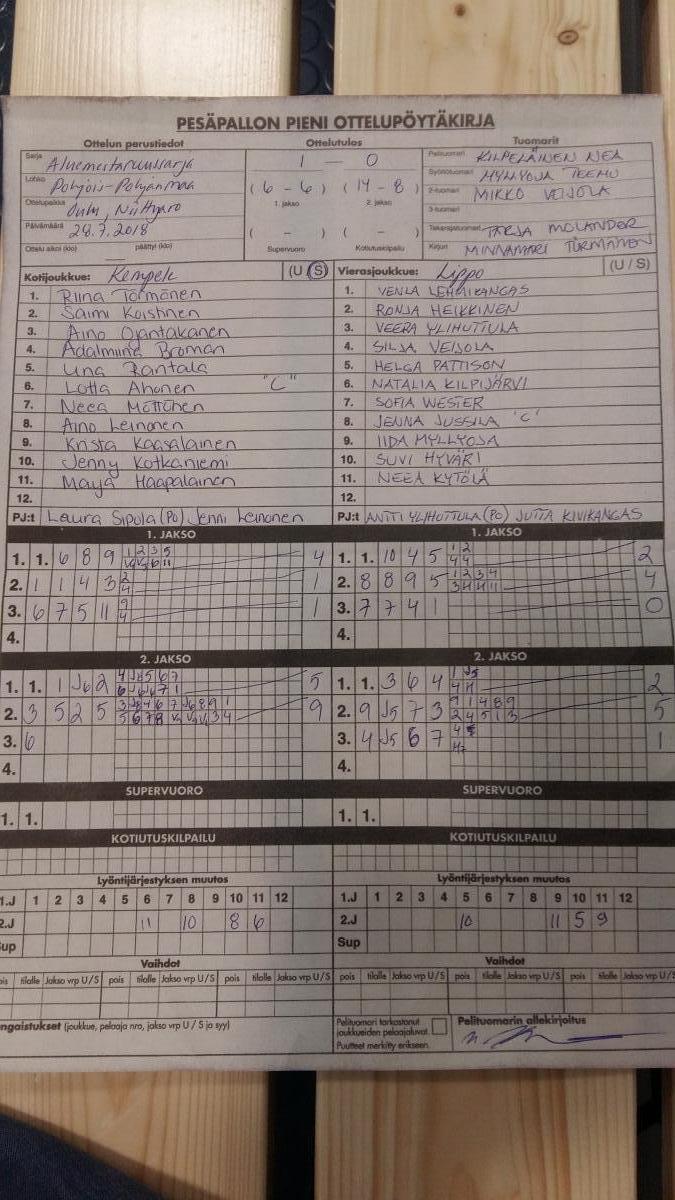 PESÄPALLON PIENI OTTELUPÖYTÄKIRJA
Ottelun perustiedot Ottelutulos Tuomarit
Sarja Aluemestaruussarja 1 — 0 Pelituomari KILPELÄINEN NEA
Lohko Pohjois-Pohjanmaa (6 - 6) (14 - 8) Syöttötuomari MYLLYOJA TEEMU
Ottelupaikka Oulu, Niittyaro 1. jakso 2. jakso 2-tuomari MIKKO VEIJOLA
Päivämäärä 28.7.2018 ( - ) ( - ) 3-tuomari
Takarajatuomari TARJA MOLANDER
Ottelu alkoi (klo) päättyi (klo) Supervuoro Kotiutuskilpailu Kirjuri MINNAMARI TÖRMÄNEN
Kotijoukkue: Kempele (U/S) Vierasjoukkue: Lippo (U / S)
1. Riina Törmänen 1. VENLA LEHMIKANGAS
2. Saimi Koistinen 2. RONJA HEIKKINEN
3. Aino Ojantakanen 3. VEERA YLIHUTTULA
4. Adalmiina Broman 4. SILJA VEIJOLA
5. Una Rantala 5. HELGA PATTISON
6. Lotta Ahonen "C" 6. NATALIA KILPIJÄRVI
7. Neea Möttönen 7. SOFIA WESTER
8. Aino Leinonen 8. JENNA JUSSILA "C"
9. Krista Kaasalainen 9. IIDA MYLLYOJA
10. Jenny Kotkaniemi 10. SUVI HYVÄRI
11. Maya Haapalainen 11. NEEA KYTÖLÄ
12. 12.
PJ:t Laura Sipola (PO) Jenni Leinonen PJ:t ANTTI YLIHUTTULA (PO) JUTTA KIVIKANGAS
1. JAKSO 1. JAKSO
1. 1. 6 8 9 4 1. 1. 10 4 5 2
2. 1 1 4 3 1 2. 8 8 9 5 4
3. 6 7 5 11 1 3. 7 7 4 1 0
4. 4.
2. JAKSO 2. JAKSO
1. 1. 1 J6 2 5 1. 1. 3 6 4 2
2. 3 5 2 5 9 2. 9 J5 7 3 5
3. 6 3. 4 J5 6 7 1
4. 4.
SUPERVUORO SUPERVUORO
1. 1. 1. 1.
KOTIUTUSKILPAILU KOTIUTUSKILPAILU
Lyöntijärjestyksen muutos Lyöntijärjestyksen muutos
1.J 1 2 3 4 5 6 7 8 9 10 11 12 1.J 1 2 3 4 5 6 7 8 9 10 11 12
2.J 11 10 8 6 2.J 10 11 5 9
Sup Sup
Vaihdot Vaihdot
pois tilalle Jakso vrp U/S pois tilalle Jakso vrp U/S pois tilalle Jakso vrp U/S pois tilalle Jakso vrp U/S pois tilalle Jakso vrp U/S
ngaistukset (joukkue, pelaaja nro, jakso vrp U / S ja syy) Pelituomari tarkastanut joukkueiden pelaajaluvat. Pelituomarin allekirjoitus
Puutteet merkitty erikseen.